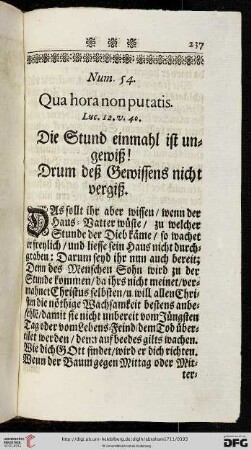 237
Num. 54.
Qua hora non putatis.
Luc. 12. v. 40.
Die Stund einmahl ist un-
gewiß!
Drum deß Gewissens nicht
vergiß.
DAs sollt ihr aber wissen / wenn der
Haus-Vatter wüste / zu welcher
Stunde der Dieb käme / so wachet
er freylich / und liesse sein Haus nicht durch-
graben: Darum seyd ihr nun auch bereit;
Denn des Menschen Sohn wird zu der
Stunde kommen / da ihrs nicht meinet / ver-
mahnet Christus selbsten / u. will allen Chri-
sten die nöthige Wachsamkeit bestens anbe-
fehlen / damit sie nicht unbereit vom Jüngsten
Tag oder vom Lebens-Feind dem Tod über-
eilet werden / denn auf beedes gilts wachen.
Wie dich GOtt findet / wird er dich richten.
Wenn der Baum gegen Mittag oder Mit-
ter-
http://digi.ub.uni-heidelberg.de/diglit/abraham1711/0393
© Universitätsbibliothek Heidelberg
gefördert durch die
DFG